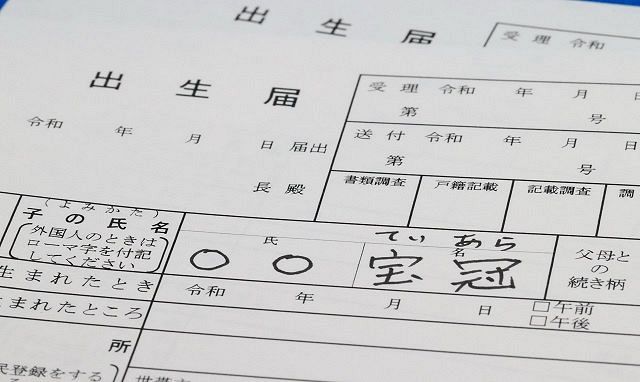 出生届
受理 令和
出生届
受理 令和 年 月 日
第 号
令和 年 月 日 届出
送付 令和 年 月
第 号
長 殿
書類調査 戸籍記載 記載調査 調
(よみかた)
子の氏名
外国人のときは
ローマ字を付記
してください
氏 名
てぃあら
○○ 宝冠
父母と
の
続き柄
生まれたとき
令和 年 月 日
□午前
□午後
まれたところ
所
民登録をする